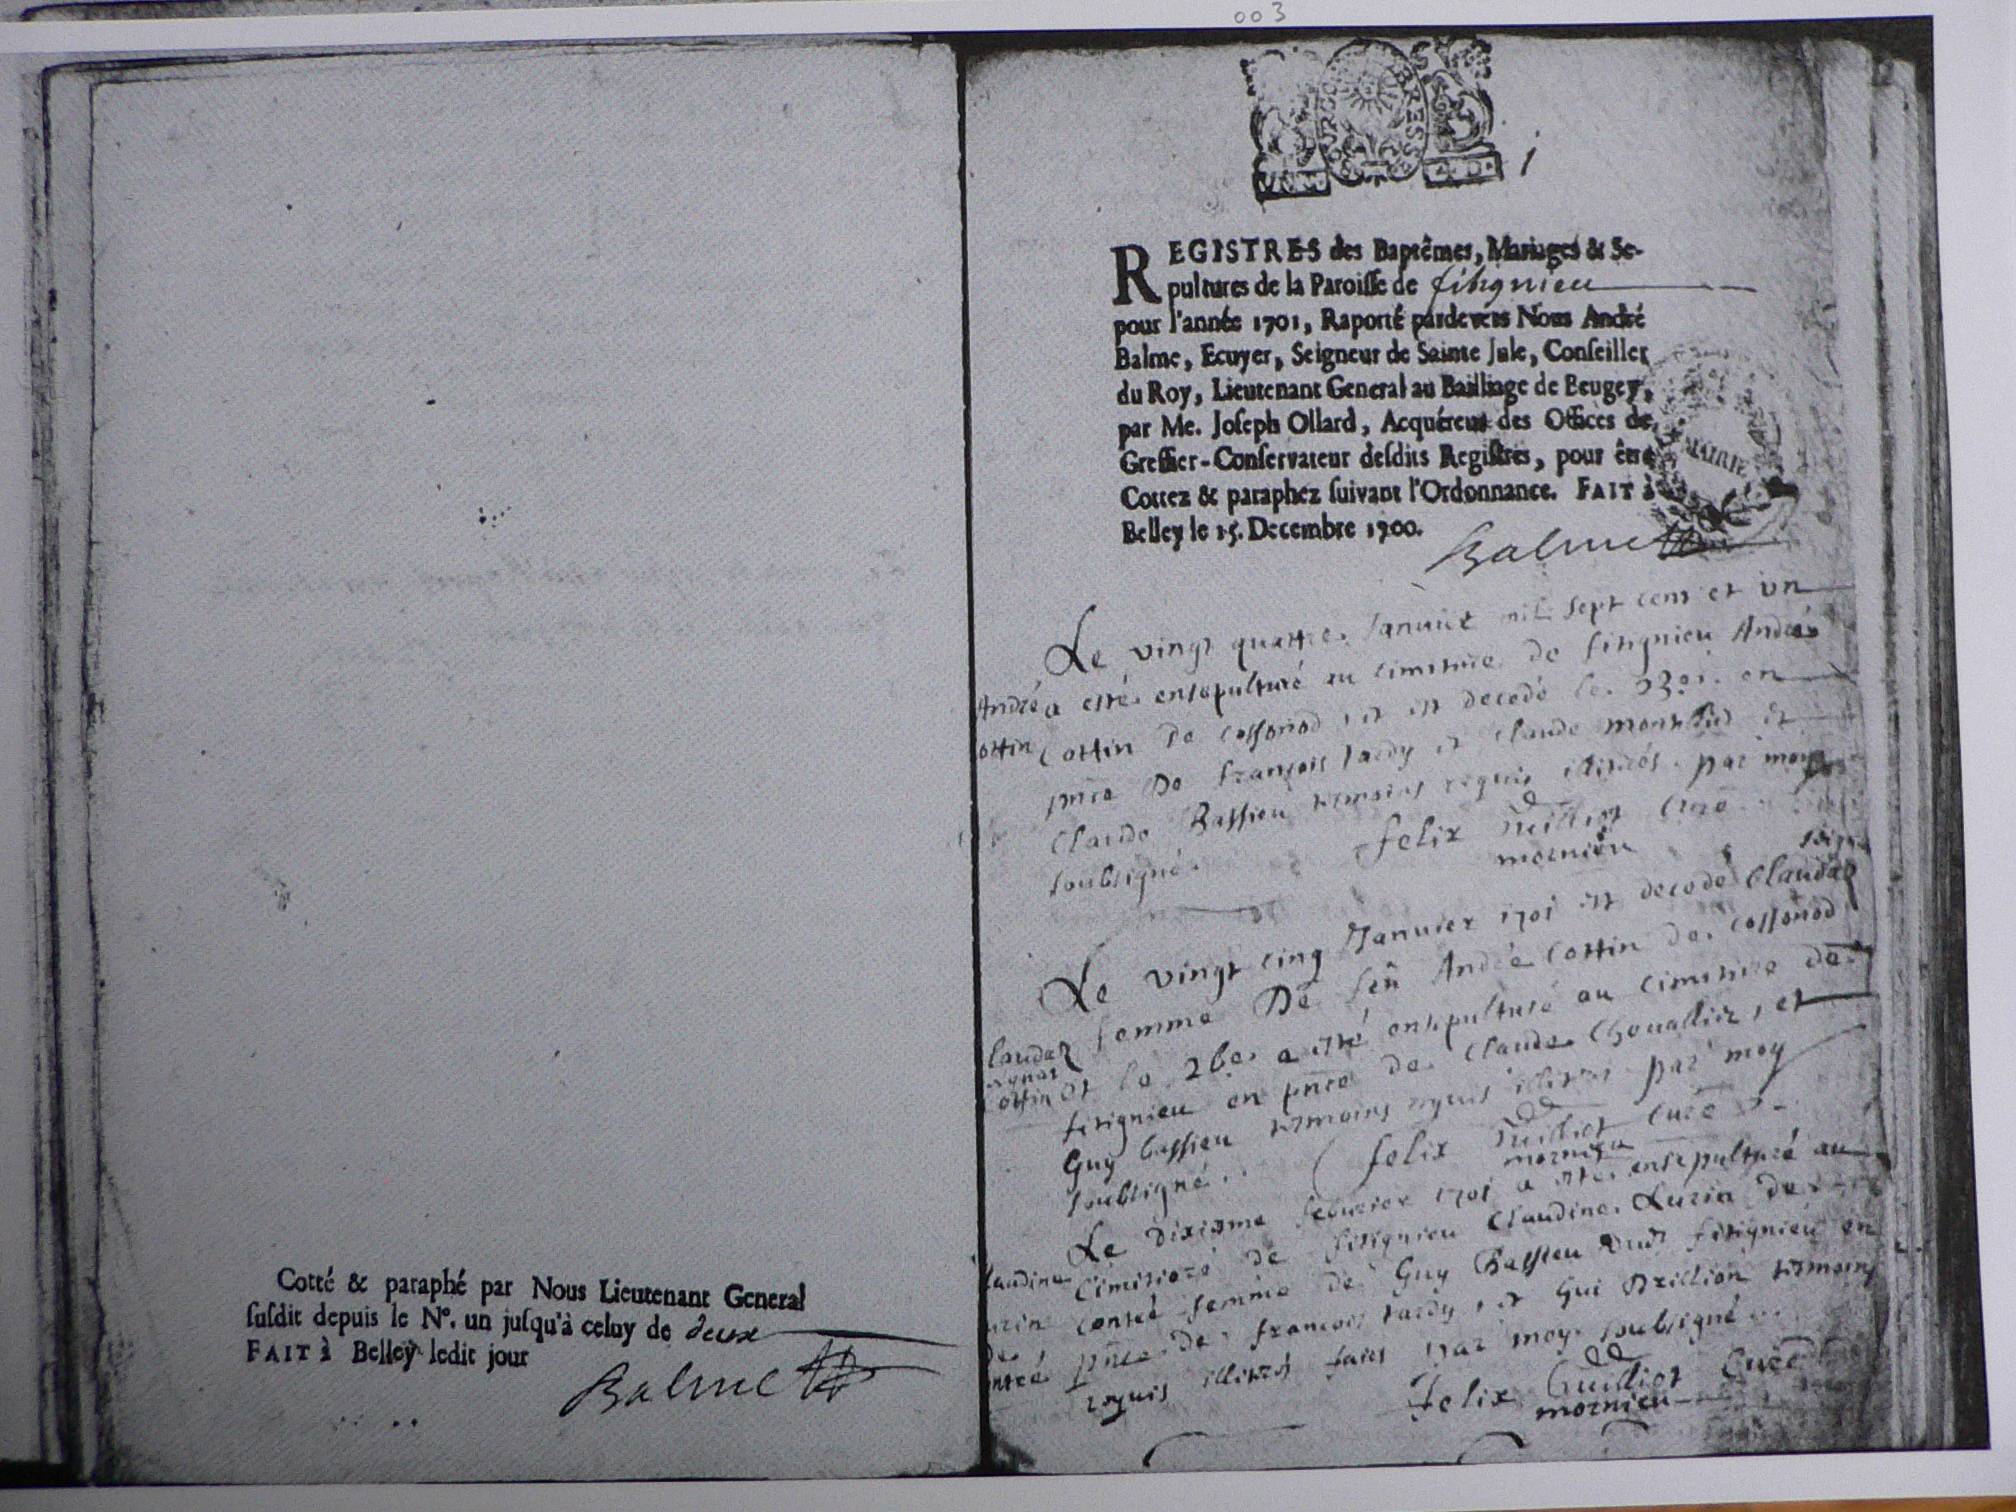 003
Cotté & paraphé par Nous Lieutenant General
susdit depuis le N°. un jusqu'à celuy de deux
FAIT à Belley ledit jour
Balme
REGISTRES des Baptêmes, Mariages & Se-
pultures de la Paroisse de fitignieu
pour l'année 1701, Raporté pardevers Nous André
Balme, Ecuyer, Seigneur de Sainte Jule, Conseiller
du Roy, Lieutenant General au Bailliage de Beugey,
par Me. Joseph Ollard, Acquéreur des Offices de
Greffier-Conservateur desdits Registres, pour être
Cottez & paraphez suivant l'Ordonnance. FAIT à
Belley le 15. Decembre 1700.
MAIRIE
Balme
Le vingt quattre Januier mil sept cens et un
André a esté ensepulturé au cimitiere de fitignieu André
Cottin de Cossonod, et est decedé le 23e. en
pnce De françois tardy et Claude et
Claude Bassieu temoins requis illitrés par moy
soubsigné. felix Guilliot Curé
mornieu
Le vingt cinq Januier 1701 est decedé Claudaz
femme De feu André Cottin de Cossonod
et le 26e. a esté ensepulturé au cimitiere de
fitignieu en pnce de Claude Chouallier, et
Guy bassieu temoins requis illitrés par moy
soubsigné. felix Guilliot Curé
mornieu
Le dixieme feburier 1701 a esté ensepulturé au
Cimitiere de fitignieu Claudine Luzin de
Contré femme de Guy Bassieu dudt fitignieu en
pnce de francois tardy, et Gui Drillion temoins
requis illitrés faict par moy soubsigné
felix Guilliot Curé
mornieu